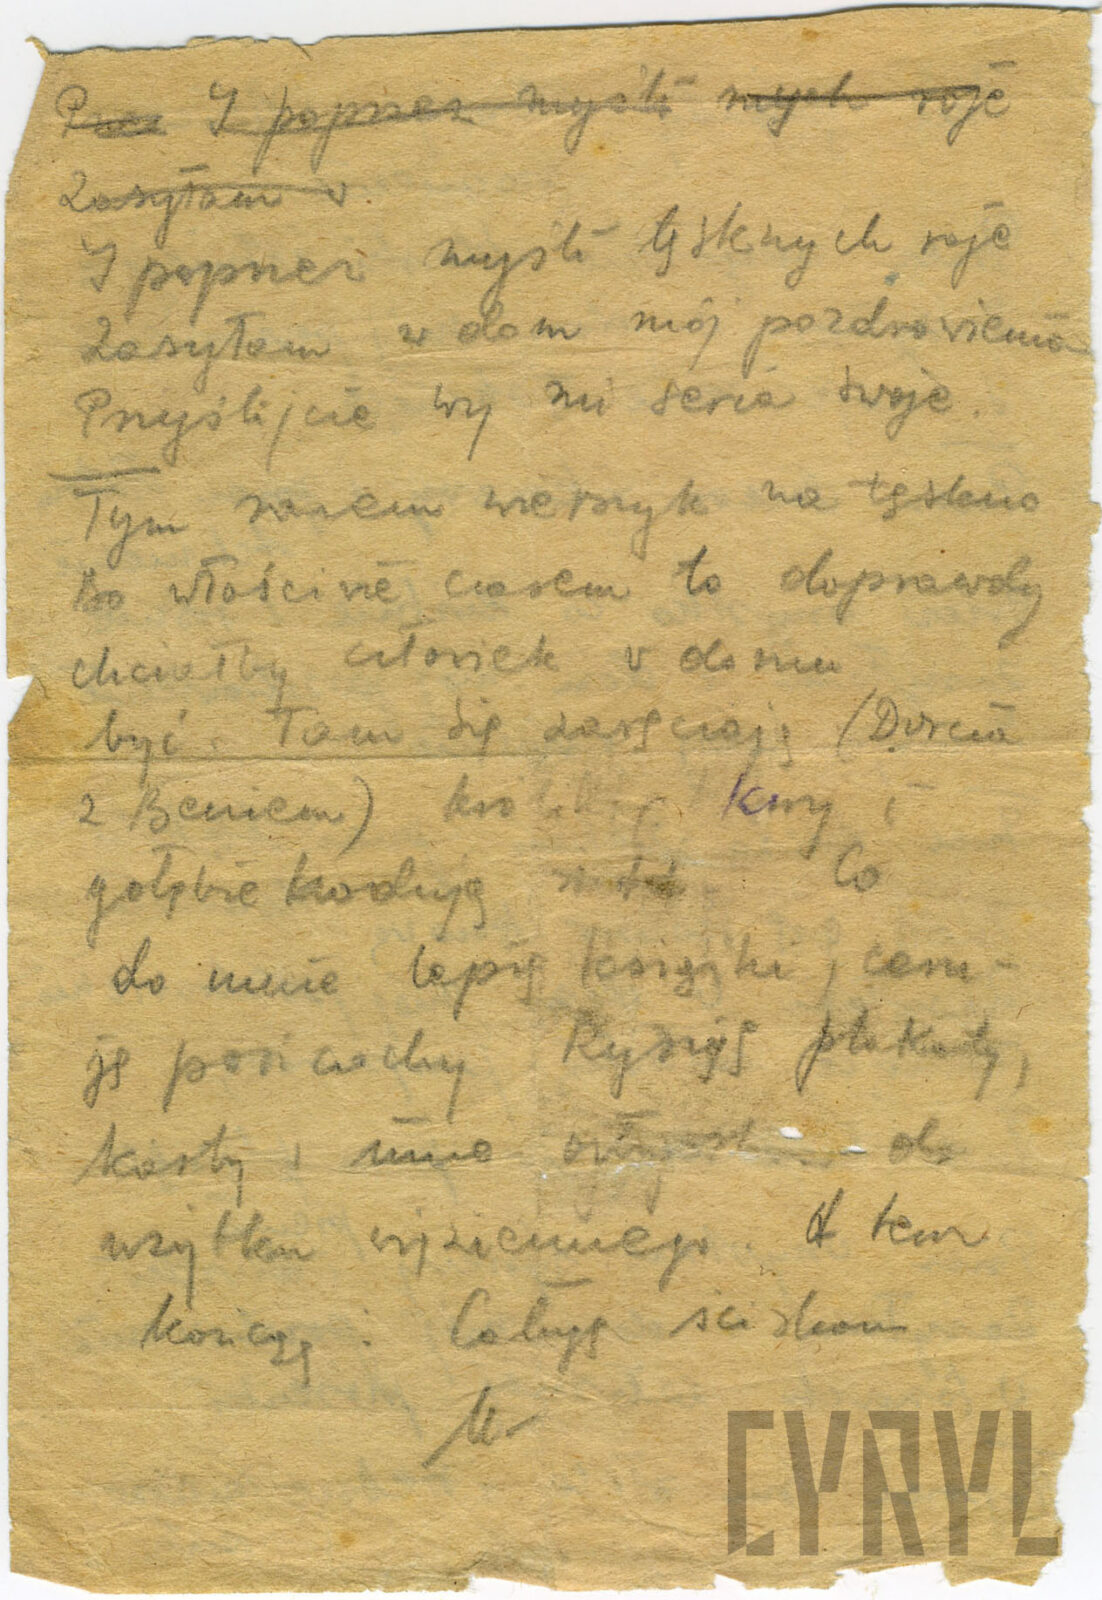 Prez I poprzez myśli mych roje
Zasyłam w
I poprzez myśli tęsknych roje
Zasyłam w dom mój pozdrowienia
Prześlijcie wy mi serca swoje.
Tym razem wierszyk na tęskno
Bo właściwie czasem to doprawdy
chciałby człowiek w domu
być. Tam się zaręczają (Dorcia
z Beniem) kury i
gołębie hodują Co
do mnie lepię książki, ceru-
ję pończochy Rysuję plakaty,
karty i inne do
użytku więziennego. A teraz
kończę. Całuję ściskam
CYRYL